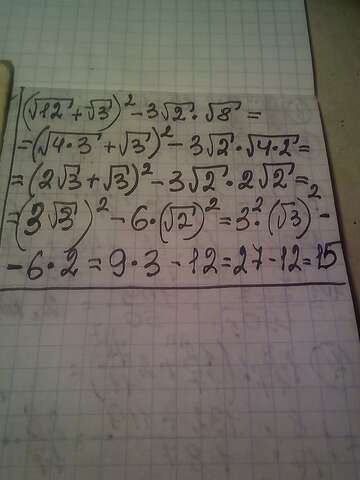 (√12 + √3)² - 3√2 · √8 =
= (√4·3 + √3)² - 3√2 · √4·2 =
= (2√3 + √3)² - 3√2 · 2√2 =
= (3√3)² - 6·(√2)² = 3²·(√3)² -
- 6·2 = 9·3 - 12 = 27 - 12 = 15